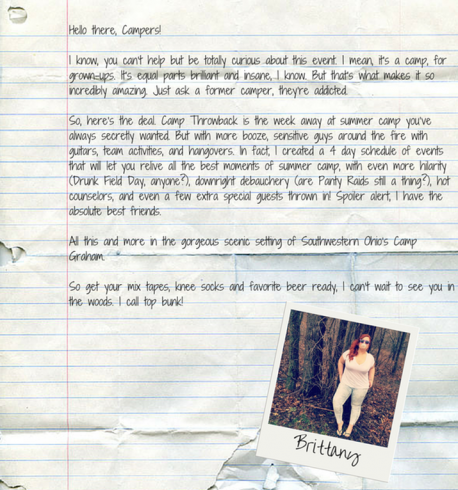 Hello there, Campers!
I know, you can't help but be totally curious about this event. I mean, it's a camp, for
grown-ups. It's equal parts brilliant and insane, I know. But that's what makes it so
incredibly amazing. Just ask a former camper, they're addicted.
So, here's the deal. Camp Throwback is the week away at summer camp you've
always secretly wanted. But with more booze, sensitive guys around the fire with
guitars, team activities, and hangovers. In fact, I created a 4 day schedule of events
that will let you relive all the best moments of summer camp, with even more hilarity
(Drunk Field Day, anyone?), downright debauchery (are Panty Raids still a thing?), hot
counselors, and even a few extra special guests thrown in! Spoiler alert, I have the
absolute best friends.
All this and more in the gorgeous scenic setting of Southwestern Ohio's Camp
Graham.
So get your mix tapes, knee socks and favorite beer ready, I can't wait to see you in
the woods. I call top bunk!
Brittany